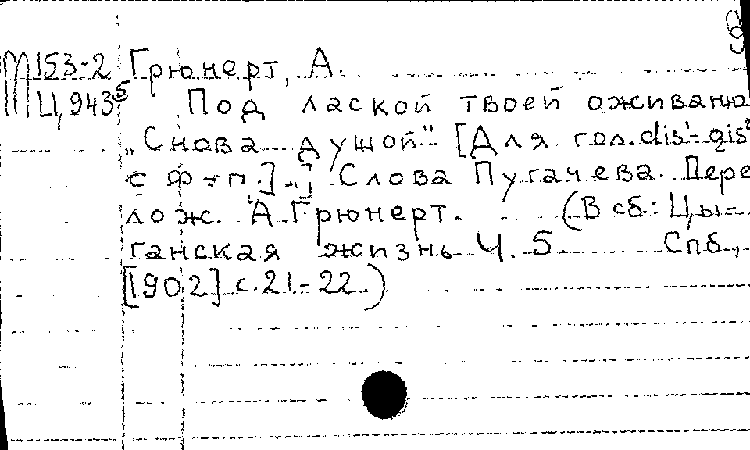 М153-2 Грюнерт, А.
Ц,943⁵ Под лаской твоей оживаю
„Снова душой" [Для гол. dis'-gis²
с ф-п.]. Слова Пугачева. Пере
лож. А. Грюнерт. (В сб: Цы=
ганская жизнь Ч. 5 Спб.,
[1902] с. 21-22.)